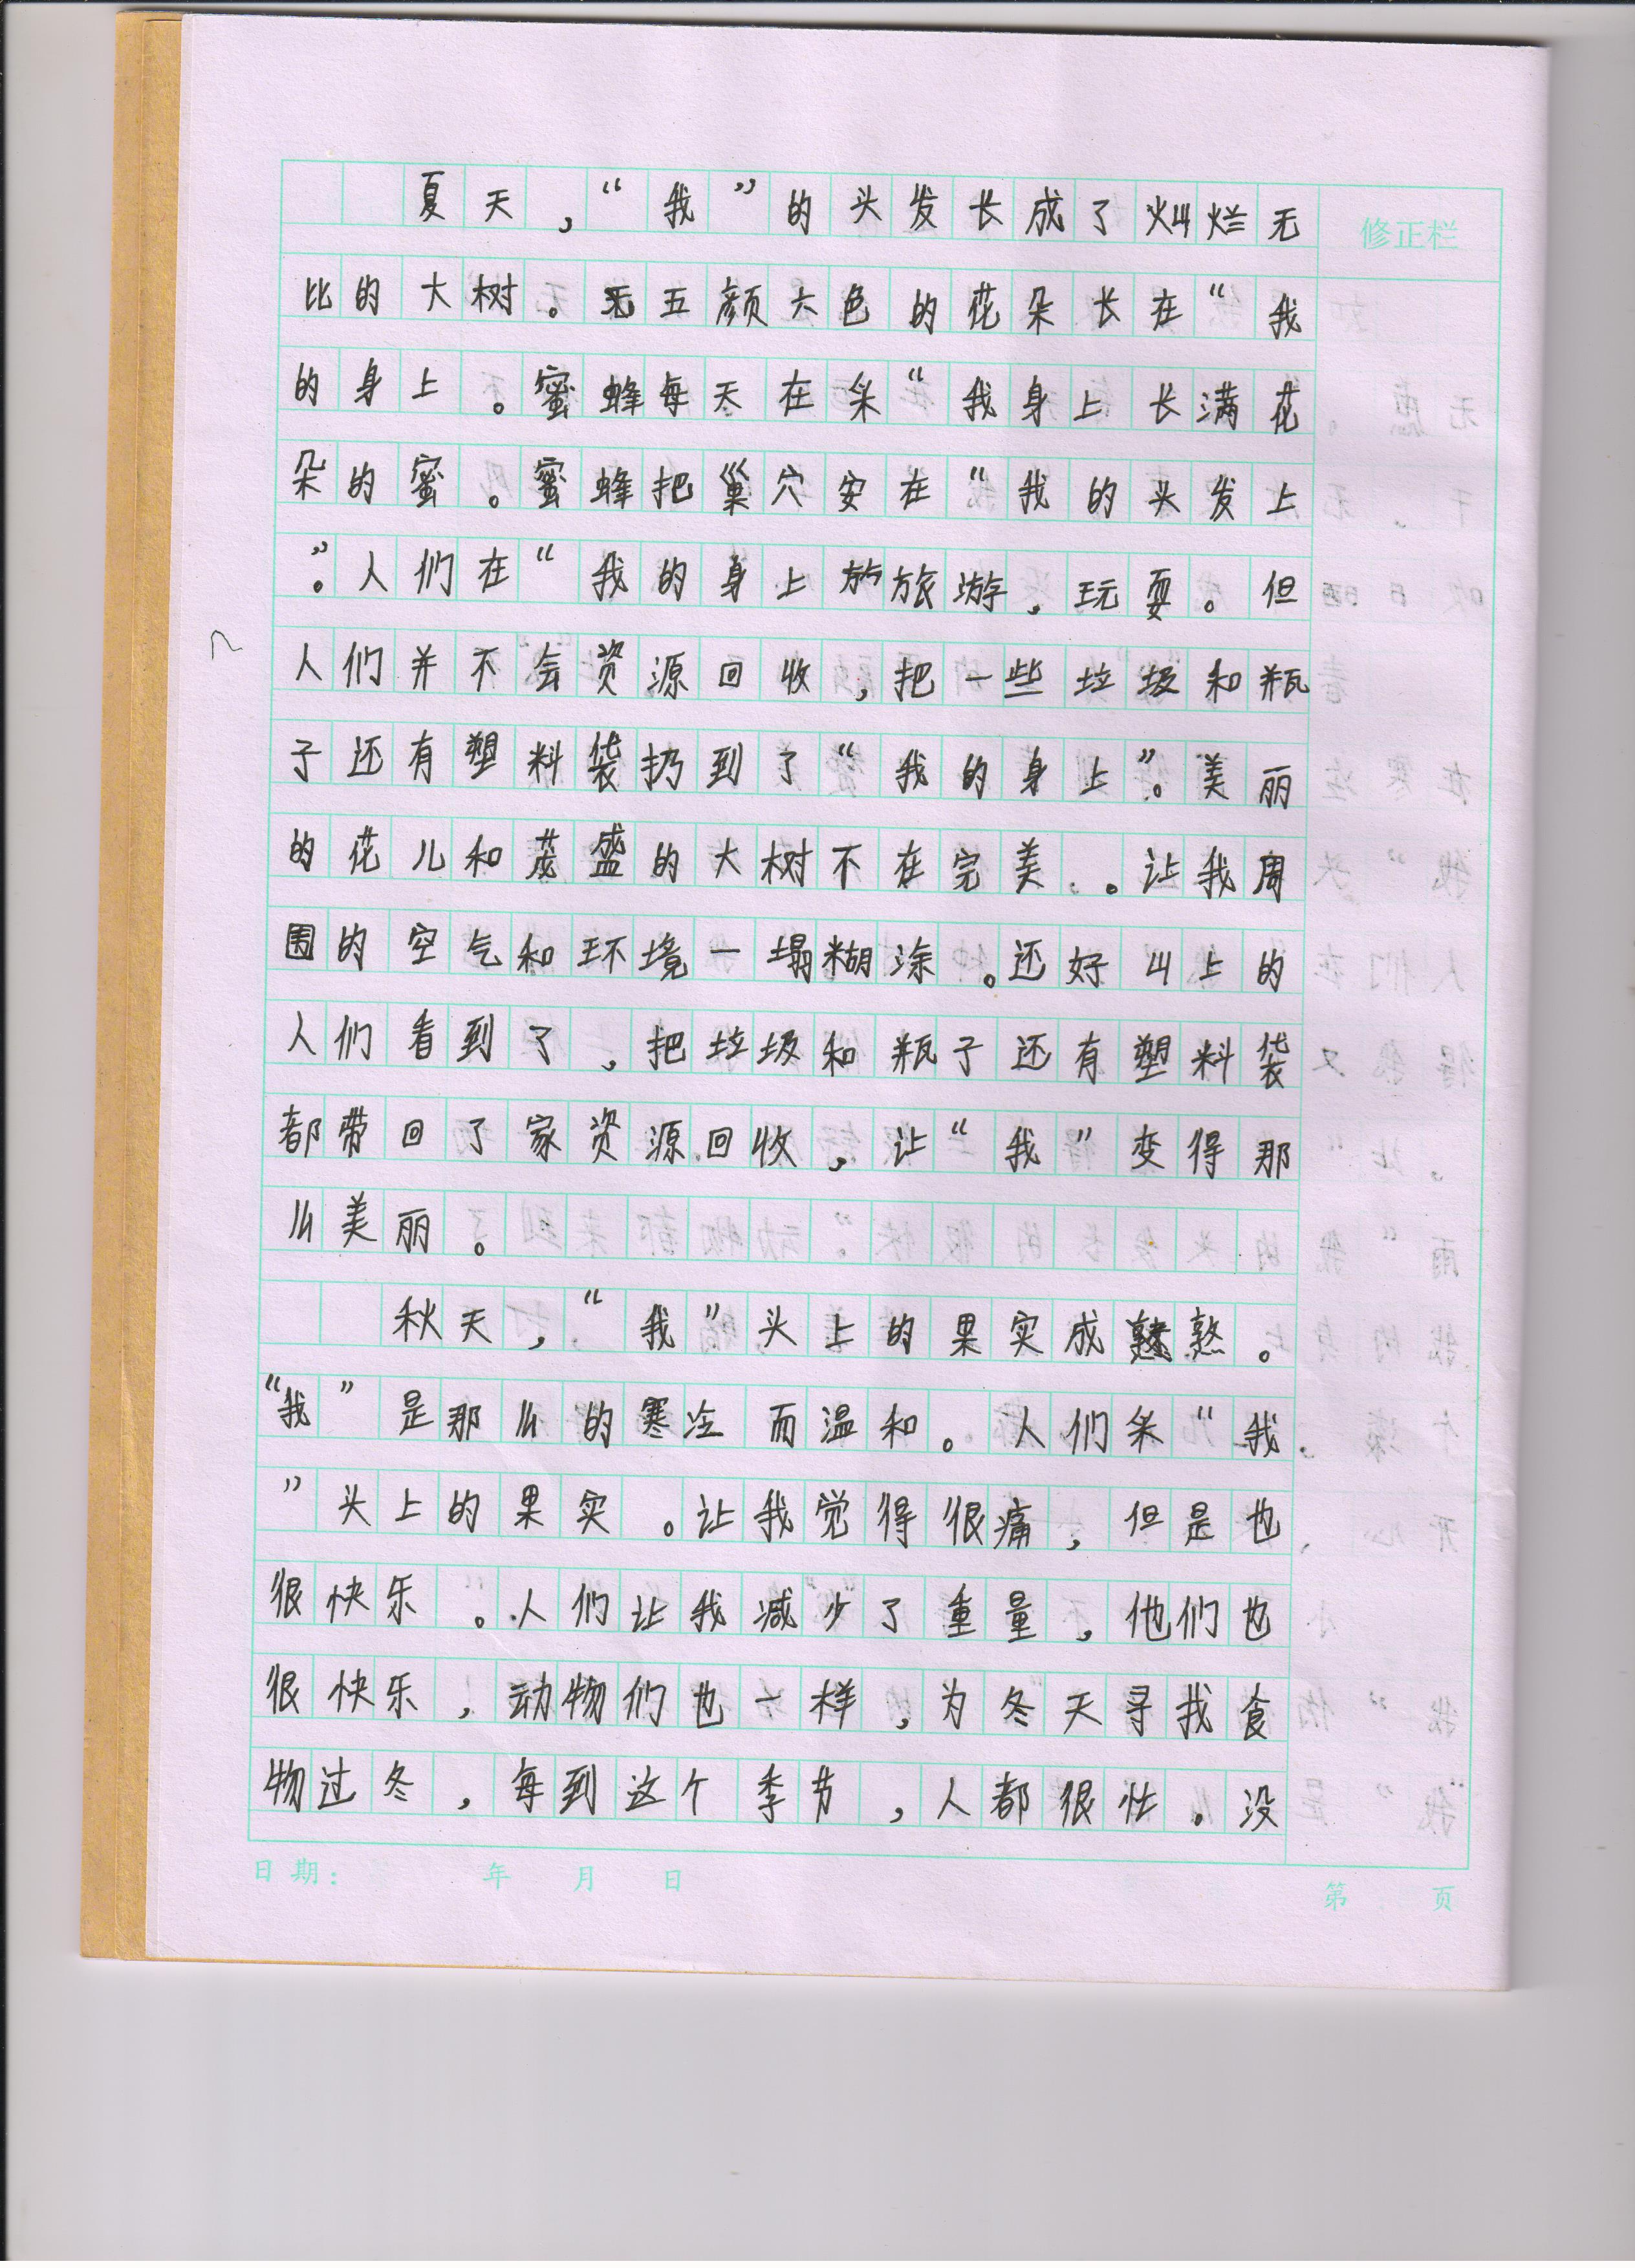 夏天，“我”的头发长成了灿烂无
修正栏
比的大树。五颜六色的花朵长在“我
的身上。蜜蜂每天在采“我身上长满花
朵的蜜。蜜蜂把巢穴安在“我的头发上
”。人们在“我的身上旅游，玩耍。但
人们并不会资源回收，把一些垃圾和瓶
子还有塑料袋扔到了“我的身上”。美丽
的花儿和茂盛的大树不在完美。让我周
围的空气和环境一塌糊涂。还好山上的
人们看到了，把垃圾和瓶子还有塑料袋
都带回了家资源回收，让“我”变得那
么美丽。
秋天，“我”头上的果实成熟。
“我”是那么的寒冷而温和。人们采“我
”头上的果实。让我觉得很痛，但是也
很快乐。人们让我减少了重量，他们也
很快乐，动物们也一样，为冬天寻找食
物过冬，每到这个季节，人都很忙。没
日期： 年 月 日
第 页